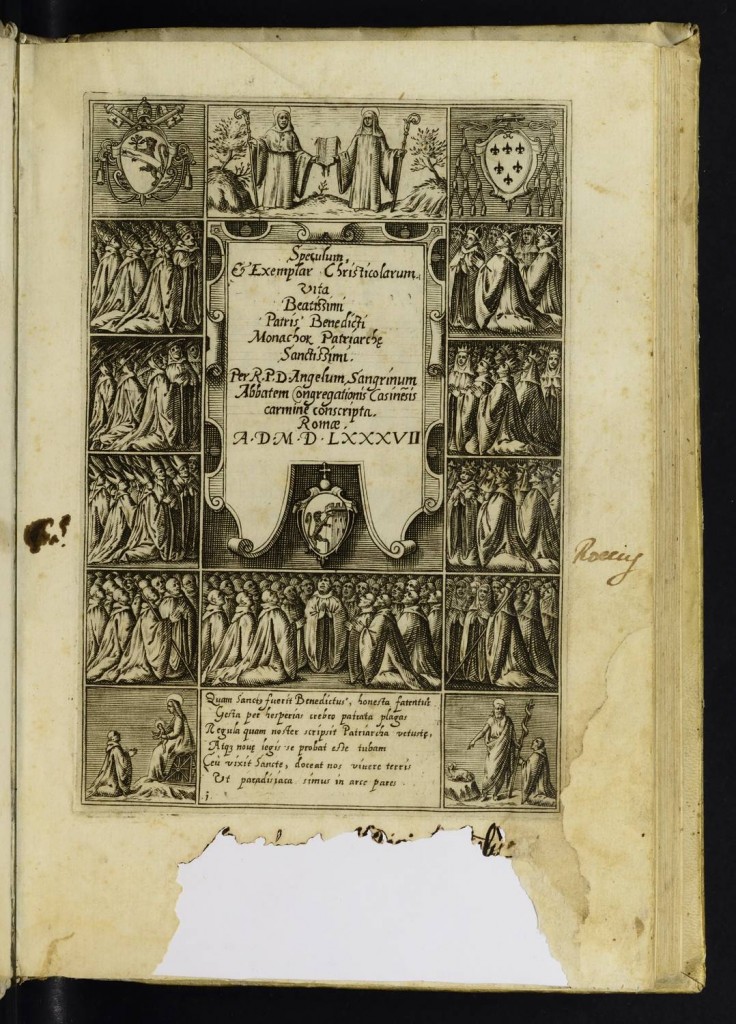 Speculum,
& Exemplar Christicolarum
Vita
Beatissimi
Patris Benedicti
Monachoꝝ Patriarchę
Sanctissimi.
Per R.P.D. Angelum Sangrinum
Abbatem Congregationis Casinēsis
carmine conscripta.
Romæ.
A·D·M·D·LXXXVII
Quam Sanctꝰ fuerit Benedictus, honesta fatentur
Gesta per hesperias crebro patrata plagas
Regula quam noster scripsit Patriarcha vetustę,
Atqꝫ nouę legis se probat esse tubam
Ceu vixit Sancte, doceat nos viuere terris
Ut paradisiaca simus in arce pares
j.